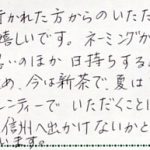 行かれた方からのいただ
嬉しいです。ネーミングが
いのほか日持ちする
め、今は新茶で、夏は
レンティーでいただくこと
信州へ出かけないかと
います。